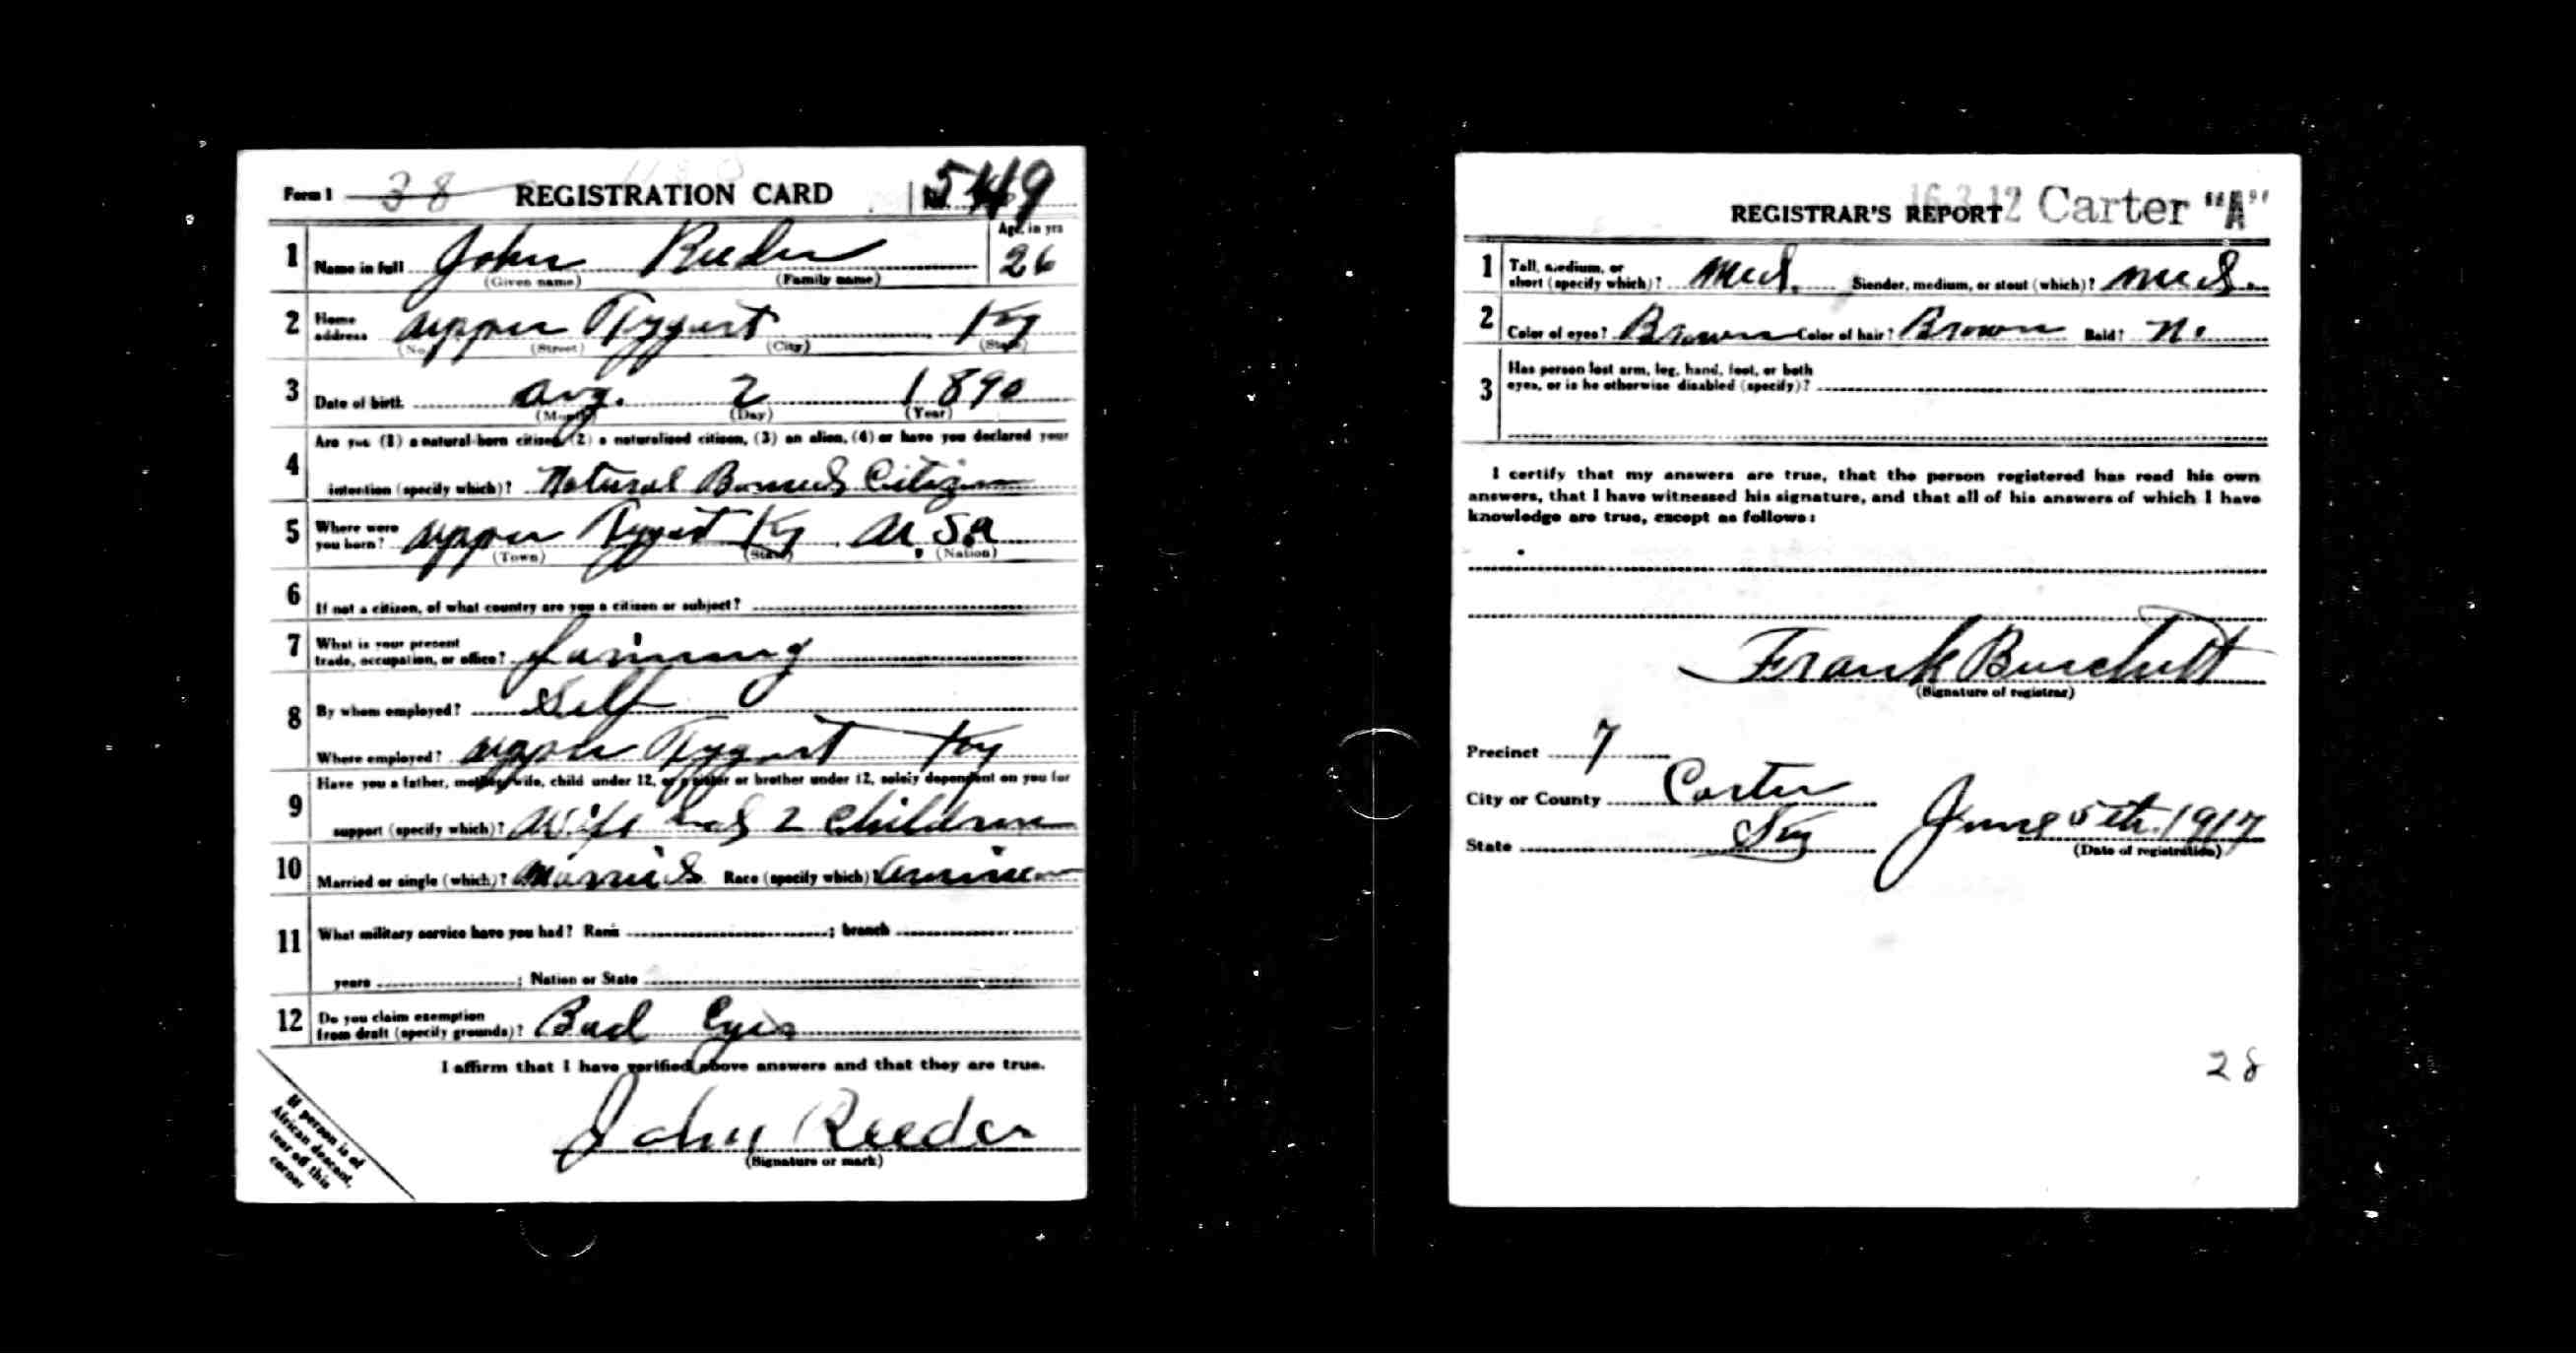 Form 1 38 REGISTRATION CARD No. 549
1 Name in full John Reeder Age, in yrs 26
(Given name) (Family name)
2 Home address Upper Tygart Ky
(No.) (Street) (City) (State)
3 Date of birth Aug. 2 1890
(Month) (Day) (Year)
4 Are you (1) a natural-born citizen, (2) a naturalized citizen, (3) an alien, (4) or have you declared your
intention (specify which)? Natural Borned Citizen
5 Where were you born? Upper Tygart Ky USA
(Town) (State) (Nation)
6 If not a citizen, of what country are you a citizen or subject?
7 What is your present trade, occupation, or office? farming
8 By whom employed? Self
Where employed? Upper Tygart Ky
9 Have you a father, mother, wife, child under 12, or a sister or brother under 12, solely dependent on you for
support (specify which)? Wife and 2 Children
10 Married or single (which)? Married Race (specify which)?
11 What military service have you had? Rank ; branch
years ; Nation or State
12 Do you claim exemption from draft (specify grounds)? Bad Eyes
I affirm that I have verified above answers and that they are true.
John Reeder
(Signature or mark)
If person is of
African descent,
tear off this
corner
REGISTRAR'S REPORT Carter "A"
1 Tall, medium, or short (specify which)? Med. Slender, medium, or stout (which)? Med
2 Color of eyes? Brown Color of hair? Brown Bald? No
3 Has person lost arm, leg, hand, foot, or both
eyes, or is he otherwise disabled (specify)?
I certify that my answers are true, that the person registered has read his own
answers, that I have witnessed his signature, and that all of his answers of which I have
knowledge are true, except as follows:
Frank Burchett
(Signature of registrar)
Precinct 7
City or County Carter
State Ky June 5th. 1917
(Date of registration)
28